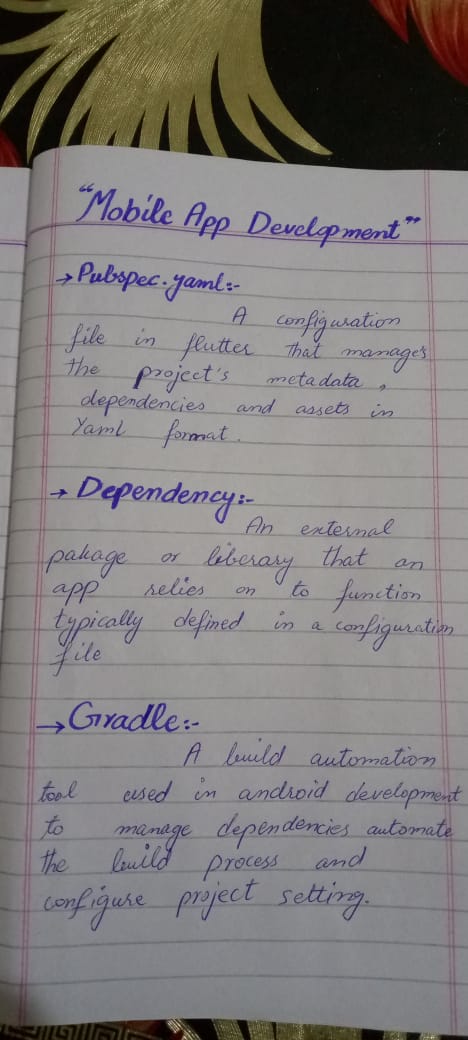 "Mobile App Development"
→ Pubspec.yaml:-
A configuration
file in flutter that manages
the project's metadata,
dependencies and assets in
Yaml format.
→ Dependency:-
An external
pakage or liberary that an
app relies on to function
typically defined in a configuration
file
→ Gradle:-
A build automation
tool used in android development
to manage dependencies automate
the build process and
configure project setting.